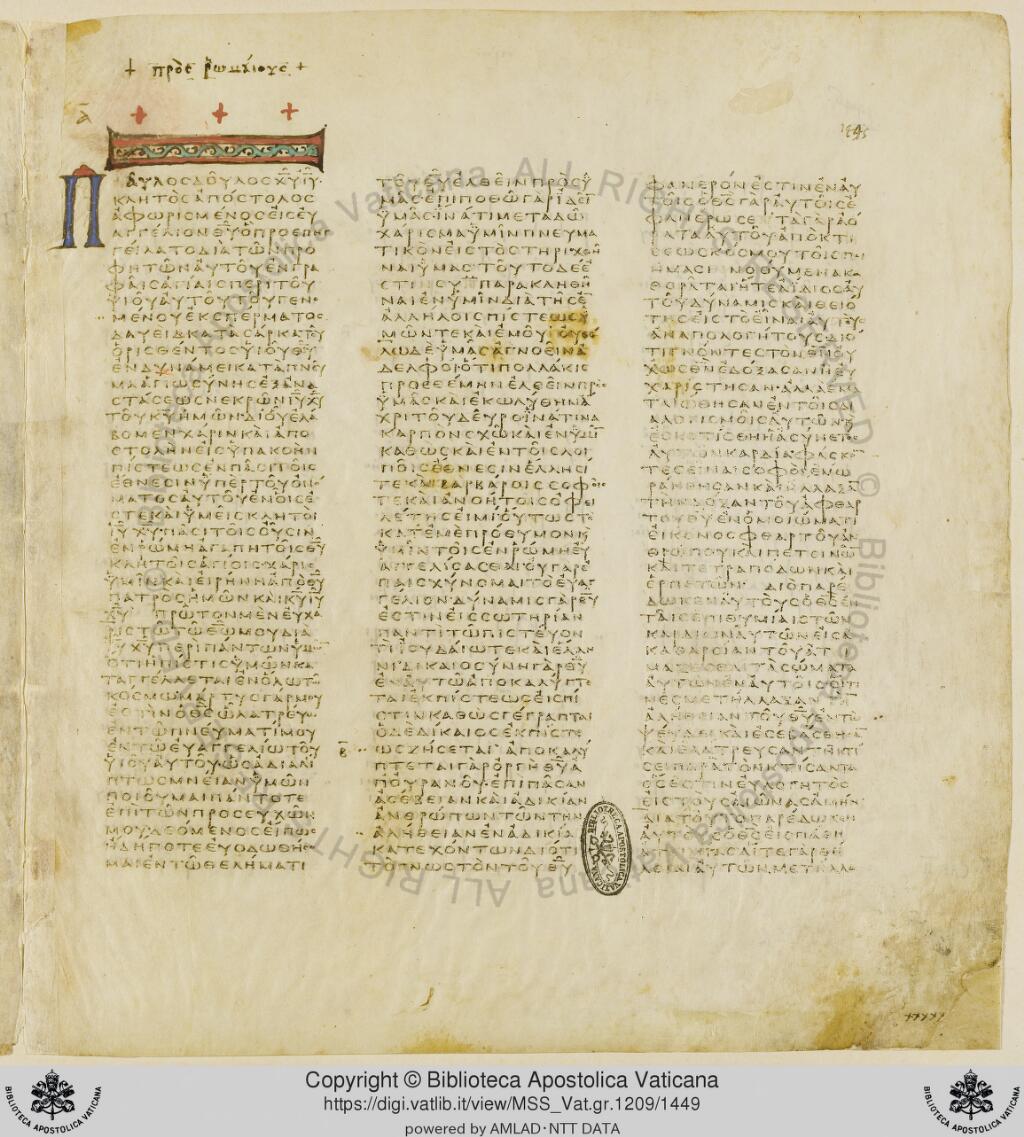 + πρὸς ῥωμαίους +
Α
ΠΑΥΛΟϹΔΟΥΛΟϹΧΥΙΥ
ΚΛΗΤΟϹΑΠΟϹΤΟΛΟϹ
ΑΦΩΡΙϹΜΕΝΟϹΕΙϹΕΥ
ΑΓΓΕΛΙΟΝΘΥΟΠΡΟΕΠΗΓ
ΓΕΙΛΑΤΟΔΙΑΤΩΝΠΡΟ
ΦΗΤΩΝΑΥΤΟΥΕΝΓΡΑ
ΦΑΙϹΑΓΙΑΙϹΠΕΡΙΤΟΥ
ΥΙΟΥΑΥΤΟΥΤΟΥΓΕΝΟ
ΜΕΝΟΥΕΚϹΠΕΡΜΑΤΟϹ
ΔΑΥΕΙΔΚΑΤΑϹΑΡΚΑΤΟΥ
ΟΡΙϹΘΕΝΤΟϹΥΙΟΥΘΥ
ΕΝΔΥΝΑΜΕΙΚΑΤΑΠΝΕΥ
ΜΑΑΓΙΩϹΥΝΗϹΕΞΑΝΑ
ϹΤΑϹΕΩϹΝΕΚΡΩΝΙΥΧΥ
ΤΟΥΚΥΗΜΩΝΔΙΟΥΕΛΑ
ΒΟΜΕΝΧΑΡΙΝΚΑΙΑΠΟ
ϹΤΟΛΗΝΕΙϹΥΠΑΚΟΗΝ
ΠΙϹΤΕΩϹΕΝΠΑϹΙΤΟΙϹ
ΕΘΝΕϹΙΝΥΠΕΡΤΟΥΟΝΟ
ΜΑΤΟϹΑΥΤΟΥΕΝΟΙϹΕ
ϹΤΕΚΑΙΥΜΕΙϹΚΛΗΤΟΙ
ΙΥΧΥΠΑϹΙΤΟΙϹΟΥϹΙΝ
ΕΝΡΩΜΗΑΓΑΠΗΤΟΙϹΘΥ
ΚΛΗΤΟΙϹΑΓΙΟΙϹΧΑΡΙϹ
ΥΜΙΝΚΑΙΕΙΡΗΝΗΑΠΟΘΥ
ΠΑΤΡΟϹΗΜΩΝΚΑΙΚΥΙΥ
ΧΥ ΠΡΩΤΟΝΜΕΝΕΥΧΑ
ΡΙϹΤΩΤΩΘΩΜΟΥΔΙΑ
ΙΥΧΥΠΕΡΙΠΑΝΤΩΝΥΜΩ
ΟΤΙΗΠΙϹΤΙϹΥΜΩΝΚΑ
ΤΑΓΓΕΛΛΕΤΑΙΕΝΟΛΩΤΩ
ΚΟϹΜΩΜΑΡΤΥϹΓΑΡΜΟΥ
ΕϹΤΙΝΟΘϹΩΛΑΤΡΕΥΩ
ΕΝΤΩΠΝΕΥΜΑΤΙΜΟΥ
ΕΝΤΩΕΥΑΓΓΕΛΙΩΤΟΥ
ΥΙΟΥΑΥΤΟΥΩϹΑΔΙΑΛΙ
ΠΤΩϹΜΝΕΙΑΝΥΜΩΝ
ΠΟΙΟΥΜΑΙΠΑΝΤΟΤΕ
ΕΠΙΤΩΝΠΡΟϹΕΥΧΩΝ
ΜΟΥΔΕΟΜΕΝΟϹΕΙΠΩϹ
ΗΔΗΠΟΤΕΕΥΟΔΩΘΗϹΟ
ΜΑΙΕΝΤΩΘΕΛΗΜΑΤΙ
ΤΟΥΘΥΕΛΘΕΙΝΠΡΟϹΥ
ΜΑϹΕΠΙΠΟΘΩΓΑΡΙΔΕΙ
ΥΜΑϹΙΝΑΤΙΜΕΤΑΔΩ
ΧΑΡΙϹΜΑΥΜΙΝΠΝΕΥΜΑ
ΤΙΚΟΝΕΙϹΤΟϹΤΗΡΙΧΘΗ
ΝΑΙΥΜΑϹΤΟΥΤΟΔΕΕ
ϹΤΙΝϹΥΠΑΡΑΚΛΗΘΗ
ΝΑΙΕΝΥΜΙΝΔΙΑΤΗϹΕ
ΑΛΛΗΛΟΙϹΠΙϹΤΕΩϹΥ
ΜΩΝΤΕΚΑΙΕΜΟΥΟΥΘΕ
ΛΩΔΕΥΜΑϹΑΓΝΟΕΙΝΑ
ΔΕΛΦΟΙΟΤΙΠΟΛΛΑΚΙϹ
ΠΡΟΕΘΕΜΗΝΕΛΘΕΙΝΠΡΟϹ
ΥΜΑϹΚΑΙΕΚΩΛΥΘΗΝΑ
ΧΡΙΤΟΥΔΕΥΡΟΙΝΑΤΙΝΑ
ΚΑΡΠΟΝϹΧΩΚΑΙΕΝΥΜΙ
ΚΑΘΩϹΚΑΙΕΝΤΟΙϹΛΟΙ
ΠΟΙϹΕΘΝΕϹΙΝΕΛΛΗϹΙ
ΤΕΚΑΙΒΑΡΒΑΡΟΙϹϹΟΦΟΙϹ
ΤΕΚΑΙΑΝΟΗΤΟΙϹΟΦΕΙ
ΛΕΤΗϹΕΙΜΙΟΥΤΩϹΤΟ
ΚΑΤΕΜΕΠΡΟΘΥΜΟΝΚ
ΥΜΙΝΤΟΙϹΕΝΡΩΜΗΕΥ
ΑΓΓΕΛΙϹΑϹΘΑΙΟΥΓΑΡΕ
ΠΑΙϹΧΥΝΟΜΑΙΤΟΕΥΑΓ
ΓΕΛΙΟΝΔΥΝΑΜΙϹΓΑΡΘΥ
ΕϹΤΙΝΕΙϹϹΩΤΗΡΙΑΝ
ΠΑΝΤΙΤΩΠΙϹΤΕΥΟΝ
ΤΙΙΟΥΔΑΙΩΤΕΚΑΙΕΛΛΗ
ΝΙΔΙΚΑΙΟϹΥΝΗΓΑΡΘΥ
ΕΝΑΥΤΩΑΠΟΚΑΛΥΠΤΕ
ΤΑΙΕΚΠΙϹΤΕΩϹΕΙϹΠΙ
ϹΤΙΝΚΑΘΩϹΓΕΓΡΑΠΤΑΙ
ΟΔΕΔΙΚΑΙΟϹΕΚΠΙϹΤΕ
Β ΩϹΖΗϹΕΤΑΙ ΑΠΟΚΑΛΥ
ΠΤΕΤΑΙΓΑΡΟΡΓΗΘΥΑ
ΠΟΥΡΑΝΟΥΕΠΙΠΑϹΑΝ
ΑϹΕΒΕΙΑΝΚΑΙΑΔΙΚΙΑΝ
ΑΝΘΡΩΠΩΝΤΩΝΤΗΝ
ΑΛΗΘΕΙΑΝΕΝΑΔΙΚΙΑ
ΚΑΤΕΧΟΝΤΩΝΔΙΟΤΙ
ΤΟΓΝΩϹΤΟΝΤΟΥΘΥ
ΦΑΝΕΡΟΝΕϹΤΙΝΕΝΑΥ
ΤΟΙϹΟΘϹΓΑΡΑΥΤΟΙϹΕ
ΦΑΝΕΡΩϹΕΤΑΓΑΡΑΟ
ΡΑΤΑΑΥΤΟΥΑΠΟΚΤΙ
ϹΕΩϹΚΟϹΜΟΥΤΟΙϹΠΟΙ
ΗΜΑϹΙΝΟΟΥΜΕΝΑΚΑ
ΘΟΡΑΤΑΙΗΤΕΑΙΔΙΟϹΑΥ
ΤΟΥΔΥΝΑΜΙϹΚΑΙΘΕΙΟ
ΤΗϹΕΙϹΤΟΕΙΝΑΙΑΥΤΟΥϹ
ΑΝΑΠΟΛΟΓΗΤΟΥϹΔΙΟ
ΤΙΓΝΟΝΤΕϹΤΟΝΘΝΟΥ
ΧΩϹΘΝΕΔΟΞΑϹΑΝΗΕΥ
ΧΑΡΙϹΤΗϹΑΝΑΛΛΑΕΜΑ
ΤΑΙΩΘΗϹΑΝΕΝΤΟΙϹΔΙ
ΑΛΟΓΙϹΜΟΙϹΑΥΤΩΝΚ
ΕϹΚΟΤΙϹΘΗΗΑϹΥΝΕΤΟϹ
ΑΥΤΩΝΚΑΡΔΙΑΦΑϹΚΟ
ΤΕϹΕΙΝΑΙϹΟΦΟΙΕΜΩ
ΡΑΝΘΗϹΑΝΚΑΙΗΛΛΑΞΑ
ΤΗΝΔΟΞΑΝΤΟΥΑΦΘΑΡ
ΤΟΥΘΥΕΝΟΜΟΙΩΜΑΤΙ
ΕΙΚΟΝΟϹΦΘΑΡΤΟΥΑΝ
ΘΡΩΠΟΥΚΑΙΠΕΤΕΙΝΩ
ΚΑΙΤΕΤΡΑΠΟΔΩΝΚΑΙ
ΕΡΠΕΤΩΝ ΔΙΟΠΑΡΕ
ΔΩΚΕΝΑΥΤΟΥϹΟΘϹΕΝ
ΤΑΙϹΕΠΙΘΥΜΙΑΙϹΤΩΝ
ΚΑΡΔΙΩΝΑΥΤΩΝΕΙϹΑ
ΚΑΘΑΡϹΙΑΝΤΟΥΑΤΙ
ΜΑΖΕϹΘΑΙΤΑϹΩΜΑΤΑ
ΑΥΤΩΝΕΝΑΥΤΟΙϹΟΙΤΙ
ΝΕϹΜΕΤΗΛΛΑΞΑΝΤΗ
ΑΛΗΘΕΙΑΝΤΟΥΘΥΕΝΤΩ
ΨΕΥΔΕΙΚΑΙΕϹΕΒΑϹΘΗϹΑ
ΚΑΙΕΛΑΤΡΕΥϹΑΝΤΗΚΤΙ
ϹΕΙΠΑΡΑΤΟΝΚΤΙϹΑΝΤΑ
ΟϹΕϹΤΙΝΕΥΛΟΓΗΤΟϹ
ΕΙϹΤΟΥϹΑΙΩΝΑϹΑΜΗΝ
ΔΙΑΤΟΥΤΟΠΑΡΕΔΩΚΕΝ
ΑΥΤΟΥϹΟΘϹΕΙϹΠΑΘΗ
ΑΤΙΜΙΑϹΑΙΤΕΓΑΡΘΗ
ΛΕΙΑΙΑΥΤΩΝΜΕΤΗΛΛΑ
BIBLIOTHECA APOSTOLICA VATICANA
Copyright © Biblioteca Apostolica Vaticana
https://digi.vatlib.it/view/MSS_Vat.gr.1209/1449
powered by AMLAD·NTT DATA
BIBLIOTECA APOSTOLICA VATICANA
BIBLIOTECA APOSTOLICA VATICANA